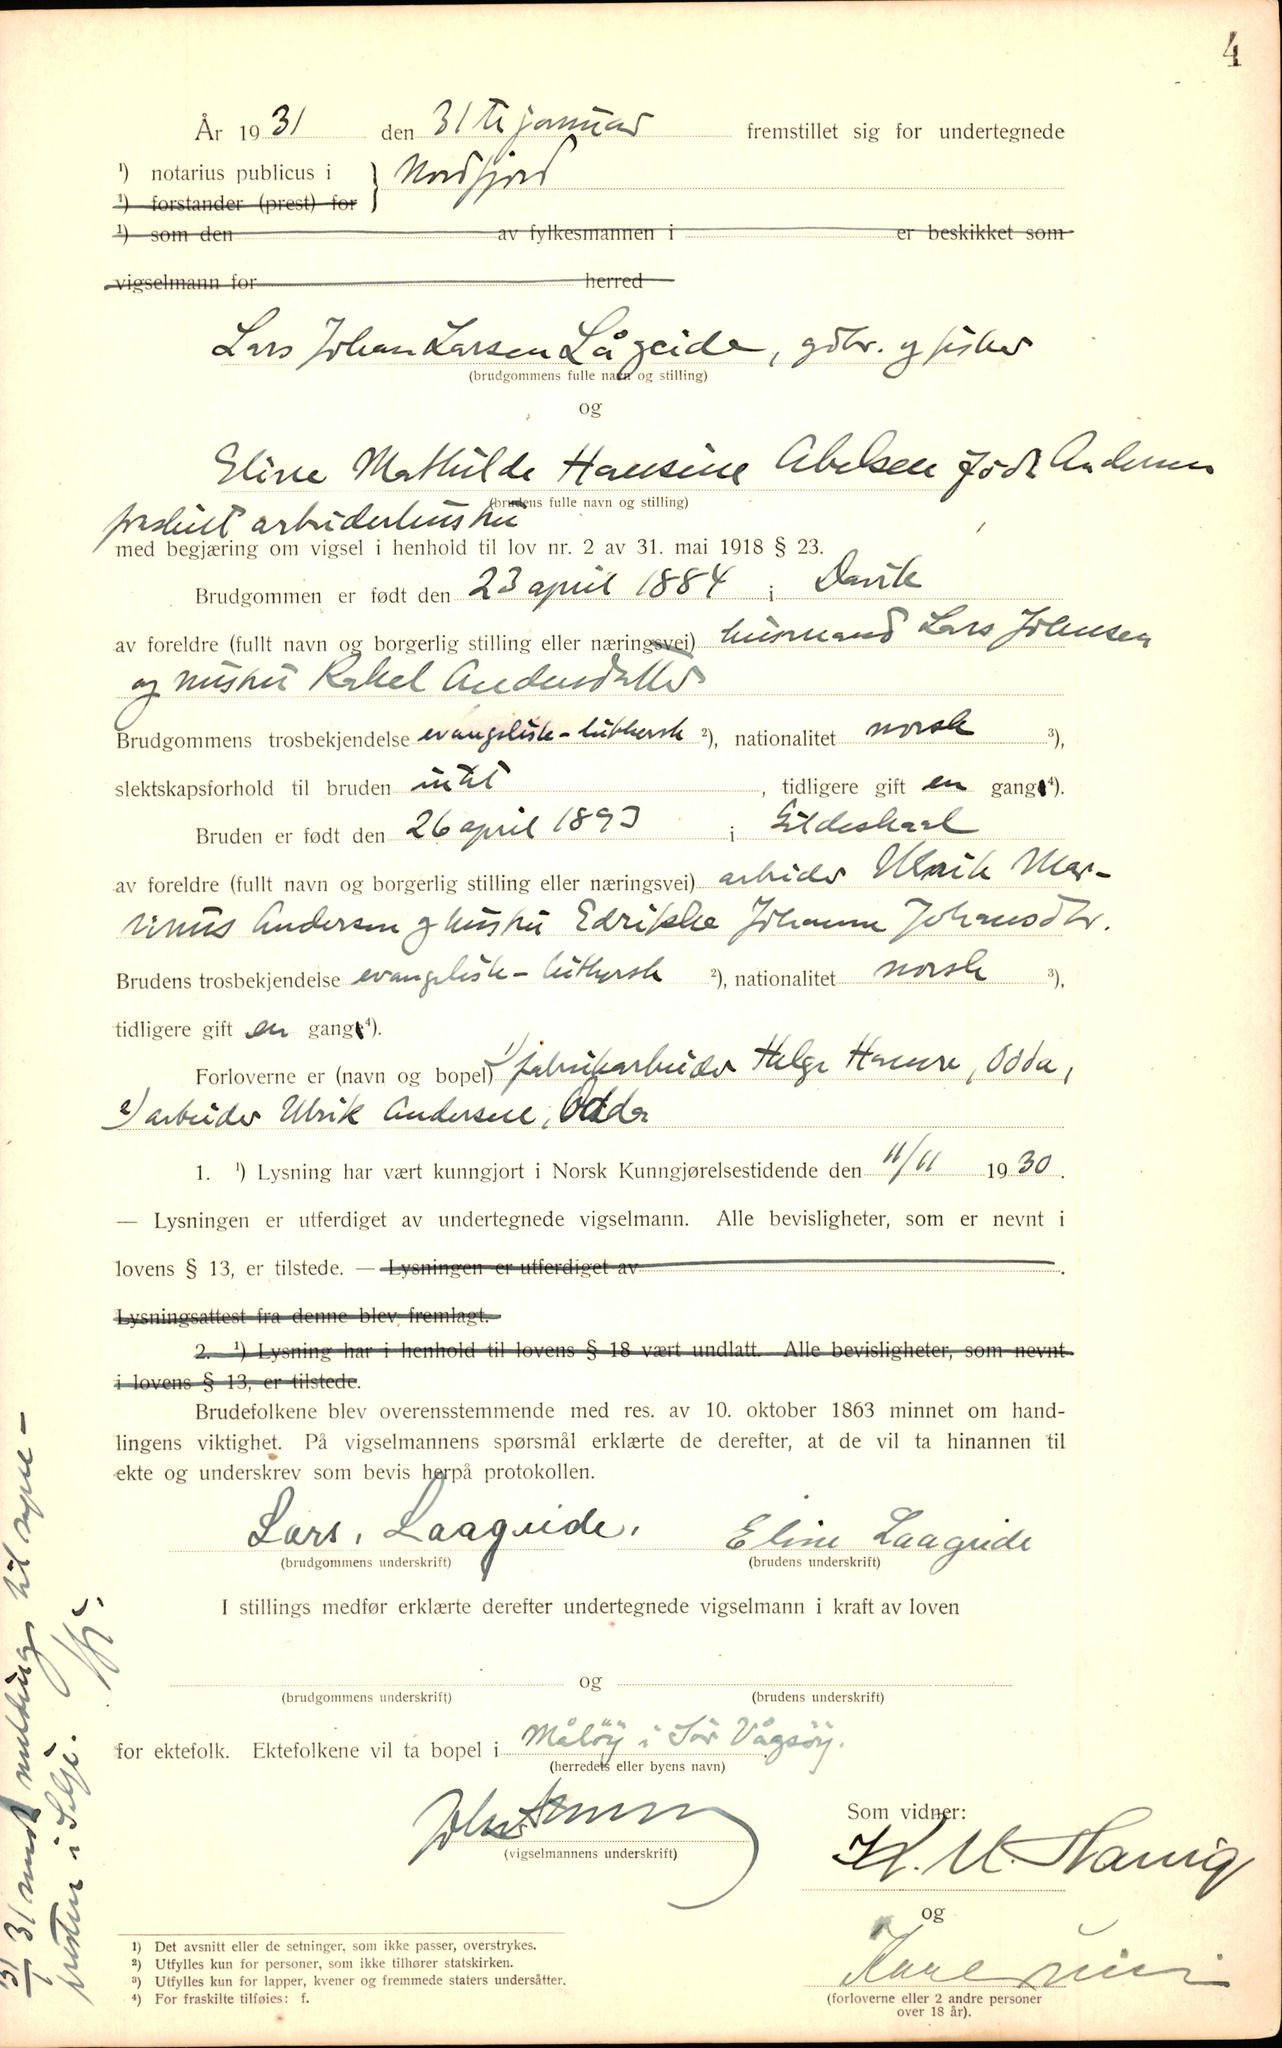 4
År 1931 den 31te januar fremstillet sig for undertegnede
¹) notarius publicus i } Nordfjord
¹) forstander (prest) for
¹) som den av fylkesmannen i er beskikket som
vigselmann for herred
Lars Johan Larsen Lågeide, gdbr. og fisker
(brudgommens fulle navn og stilling)
og
Eline Mathilde Hansine Abelsen født Andersen
(brudens fulle navn og stilling)
fraskilt arbeiderhustru
med begjæring om vigsel i henhold til lov nr. 2 av 31. mai 1918 § 23.
Brudgommen er født den 23 april 1884 i Davik
av foreldre (fullt navn og borgerlig stilling eller næringsvei) husmand Lars Johnsen
og hustru Rakel Andersdatter
Brudgommens trosbekjendelse evangelisk-luthersk ²), nationalitet norsk ³),
slektskapsforhold til bruden intet, tidligere gift en gang ⁴).
Bruden er født den 26 april 1893 i Gildeskaal
av foreldre (fullt navn og borgerlig stilling eller næringsvei) arbeider Ulrik Mar-
tinus Andersen og hustru Edrikke Johanna Johansdtr.
Brudens trosbekjendelse evangelisk-luthersk ²), nationalitet norsk ³),
tidligere gift en gang ⁴).
Forloverne er (navn og bopel) 1) fabrikarbeider Helge Hamre, Odda,
2) arbeider Ulrik Andersen, Odda
1. ¹) Lysning har vært kunngjort i Norsk Kunngjørelsestidende den 11/11 1930.
— Lysningen er utferdiget av undertegnede vigselmann. Alle bevisligheter, som er nevnt i
lovens § 13, er tilstede. — Lysningen er utferdiget av .
Lysningsattest fra denne blev fremlagt.
2. ¹) Lysning har i henhold til lovens § 18 vært undlatt. Alle bevisligheter, som nevnt
i lovens § 13, er tilstede.
Brudefolkene blev overensstemmende med res. av 10. oktober 1863 minnet om hand-
lingens viktighet. På vigselmannens spørsmål erklærte de derefter, at de vil ta hinannen til
ekte og underskrev som bevis herpå protokollen.
Lars. Laageide. Eline Laageide
(brudgommens underskrift) (brudens underskrift)
I stillings medfør erklærte derefter undertegnede vigselmann i kraft av loven
og
(brudgommens underskrift) (brudens underskrift)
for ektefolk. Ektefolkene vil ta bopel i Måløy i Sør Vågsøy.
(herredets eller byens navn)
(vigselmannens underskrift)
Som vidner:
K. M.
og
Kaare
(forloverne eller 2 andre personer
over 18 år).
1) Det avsnitt eller de setninger, som ikke passer, overstrykes.
2) Utfylles kun for personer, som ikke tilhører statskirken.
3) Utfylles kun for lapper, kvener og fremmede staters undersåtter.
4) For fraskilte tilføies: f.
31/1 31 sendt melding til sogne-
presten i Selje.